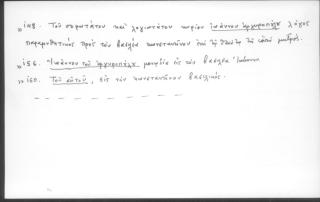 „ 148. Τοῦ σοφωτάτου καὶ λογιωτάτου κυρίου Ἰωάννου Ἀργυροπούλου λόγος
παραμυθητικὸς πρὸς τὸν βασιλέα Κωνσταντῖνον ἐπὶ τῇ τῆς μητρός.
„ 156. Ἰωάννου τοῦ Ἀργυροπούλου μονῳδία εἰς τὸν βασιλέα Ἰωάννην
„ 160. Τοῦ αὐτοῦ, εἰς τὸν Κωνσταντῖνον βασιλικός.